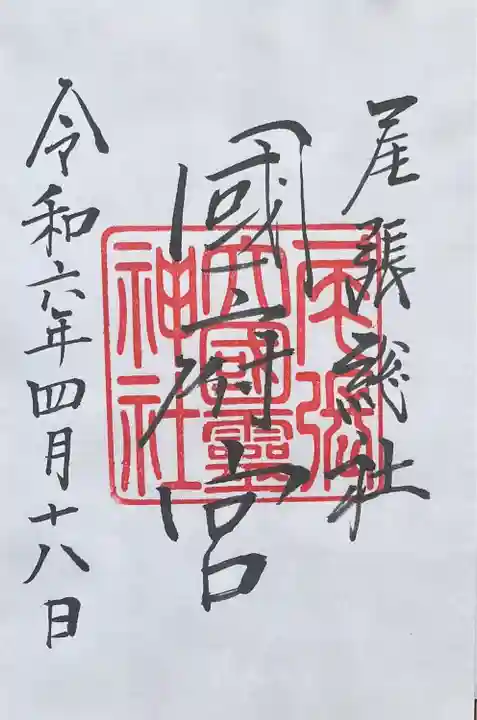 尾張総社
國府宮
令和六年四月十八日
尾張
大國靈
神社